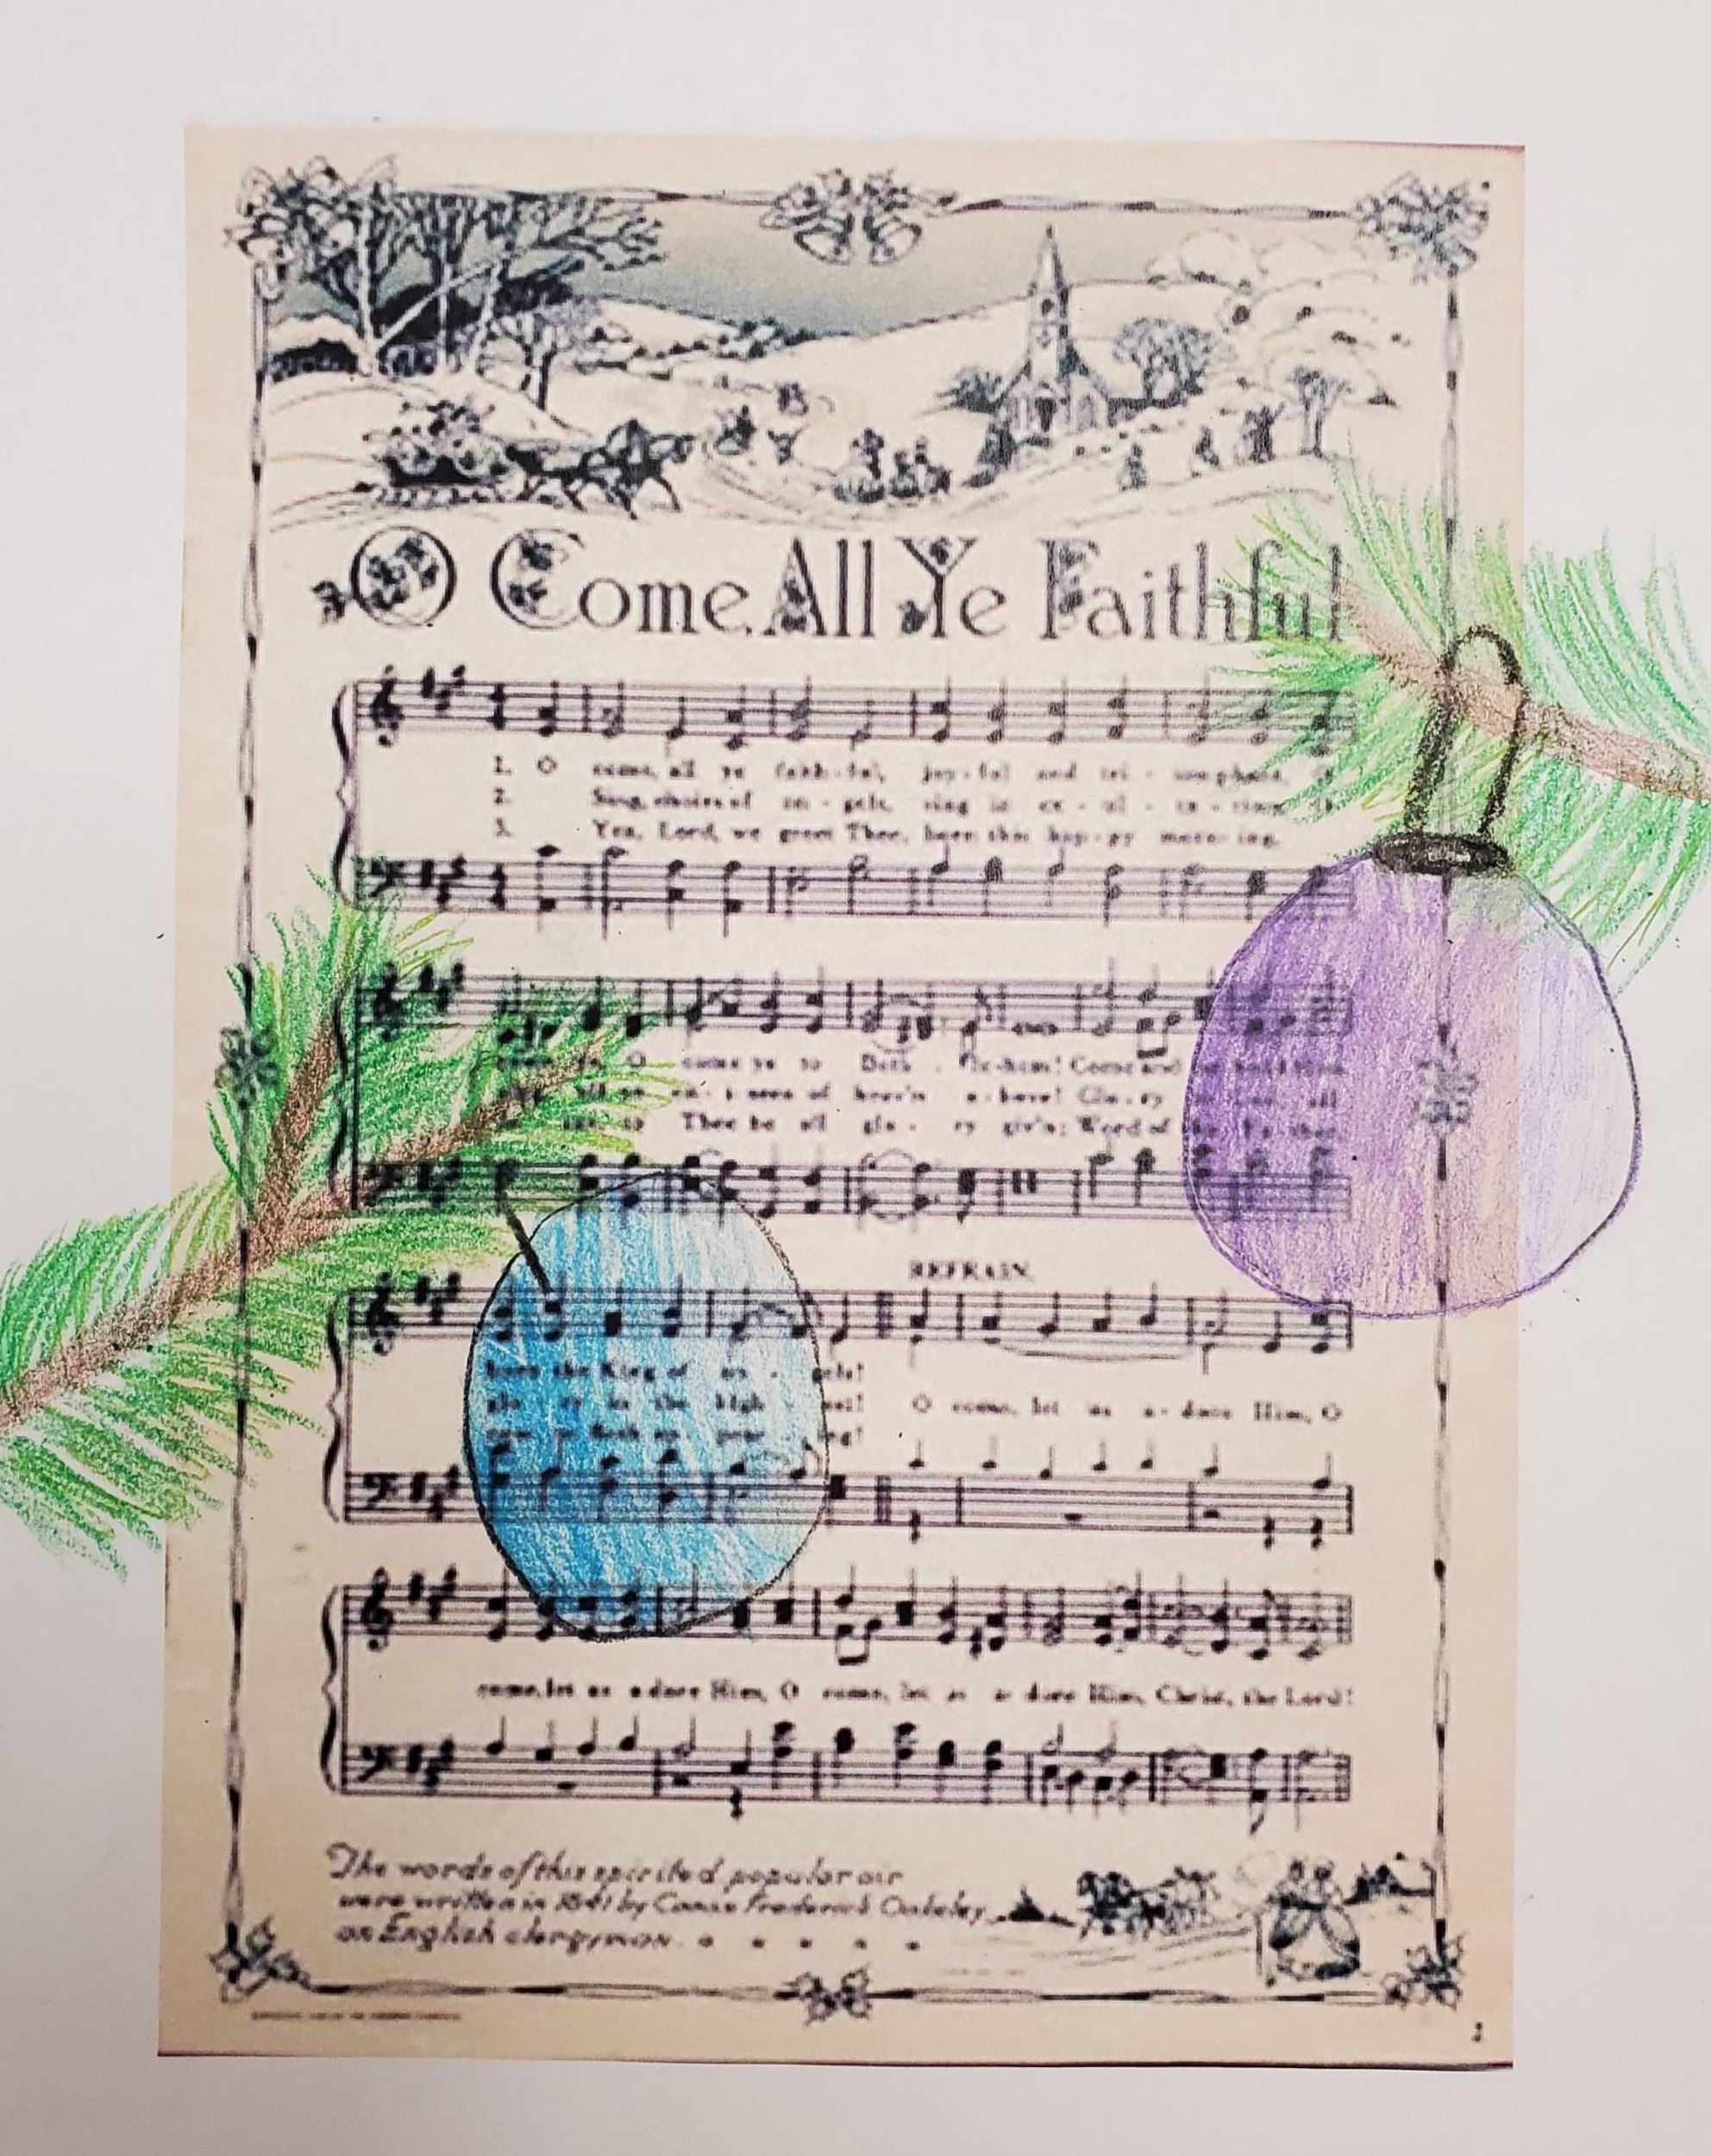 O Come All Ye Faithful
1. O come, all ye faith-ful, joy-ful and tri - umphant, O
2. Sing, choirs of an - gels, sing in ex - ul - ta - tion, O
3. Yea, Lord, we greet Thee, born this hap-py morn-ing,
O come ye to Beth - le-hem! Come and
of heav'n a-bove! Glo-ry all
to Thee be all glo - ry giv'n; Word of
REFRAIN.
born the King of an - gels!
glo - ry in the high - est! O come, let us a-dore Him, O
flesh ap - pear - ing!
come, let us adore Him, O come, let us a-dore Him, Christ, the Lord!
The words of this spirited popular air
were written in 1841 by Canon Frederick Oakeley,
an English clergyman . . . . .
2